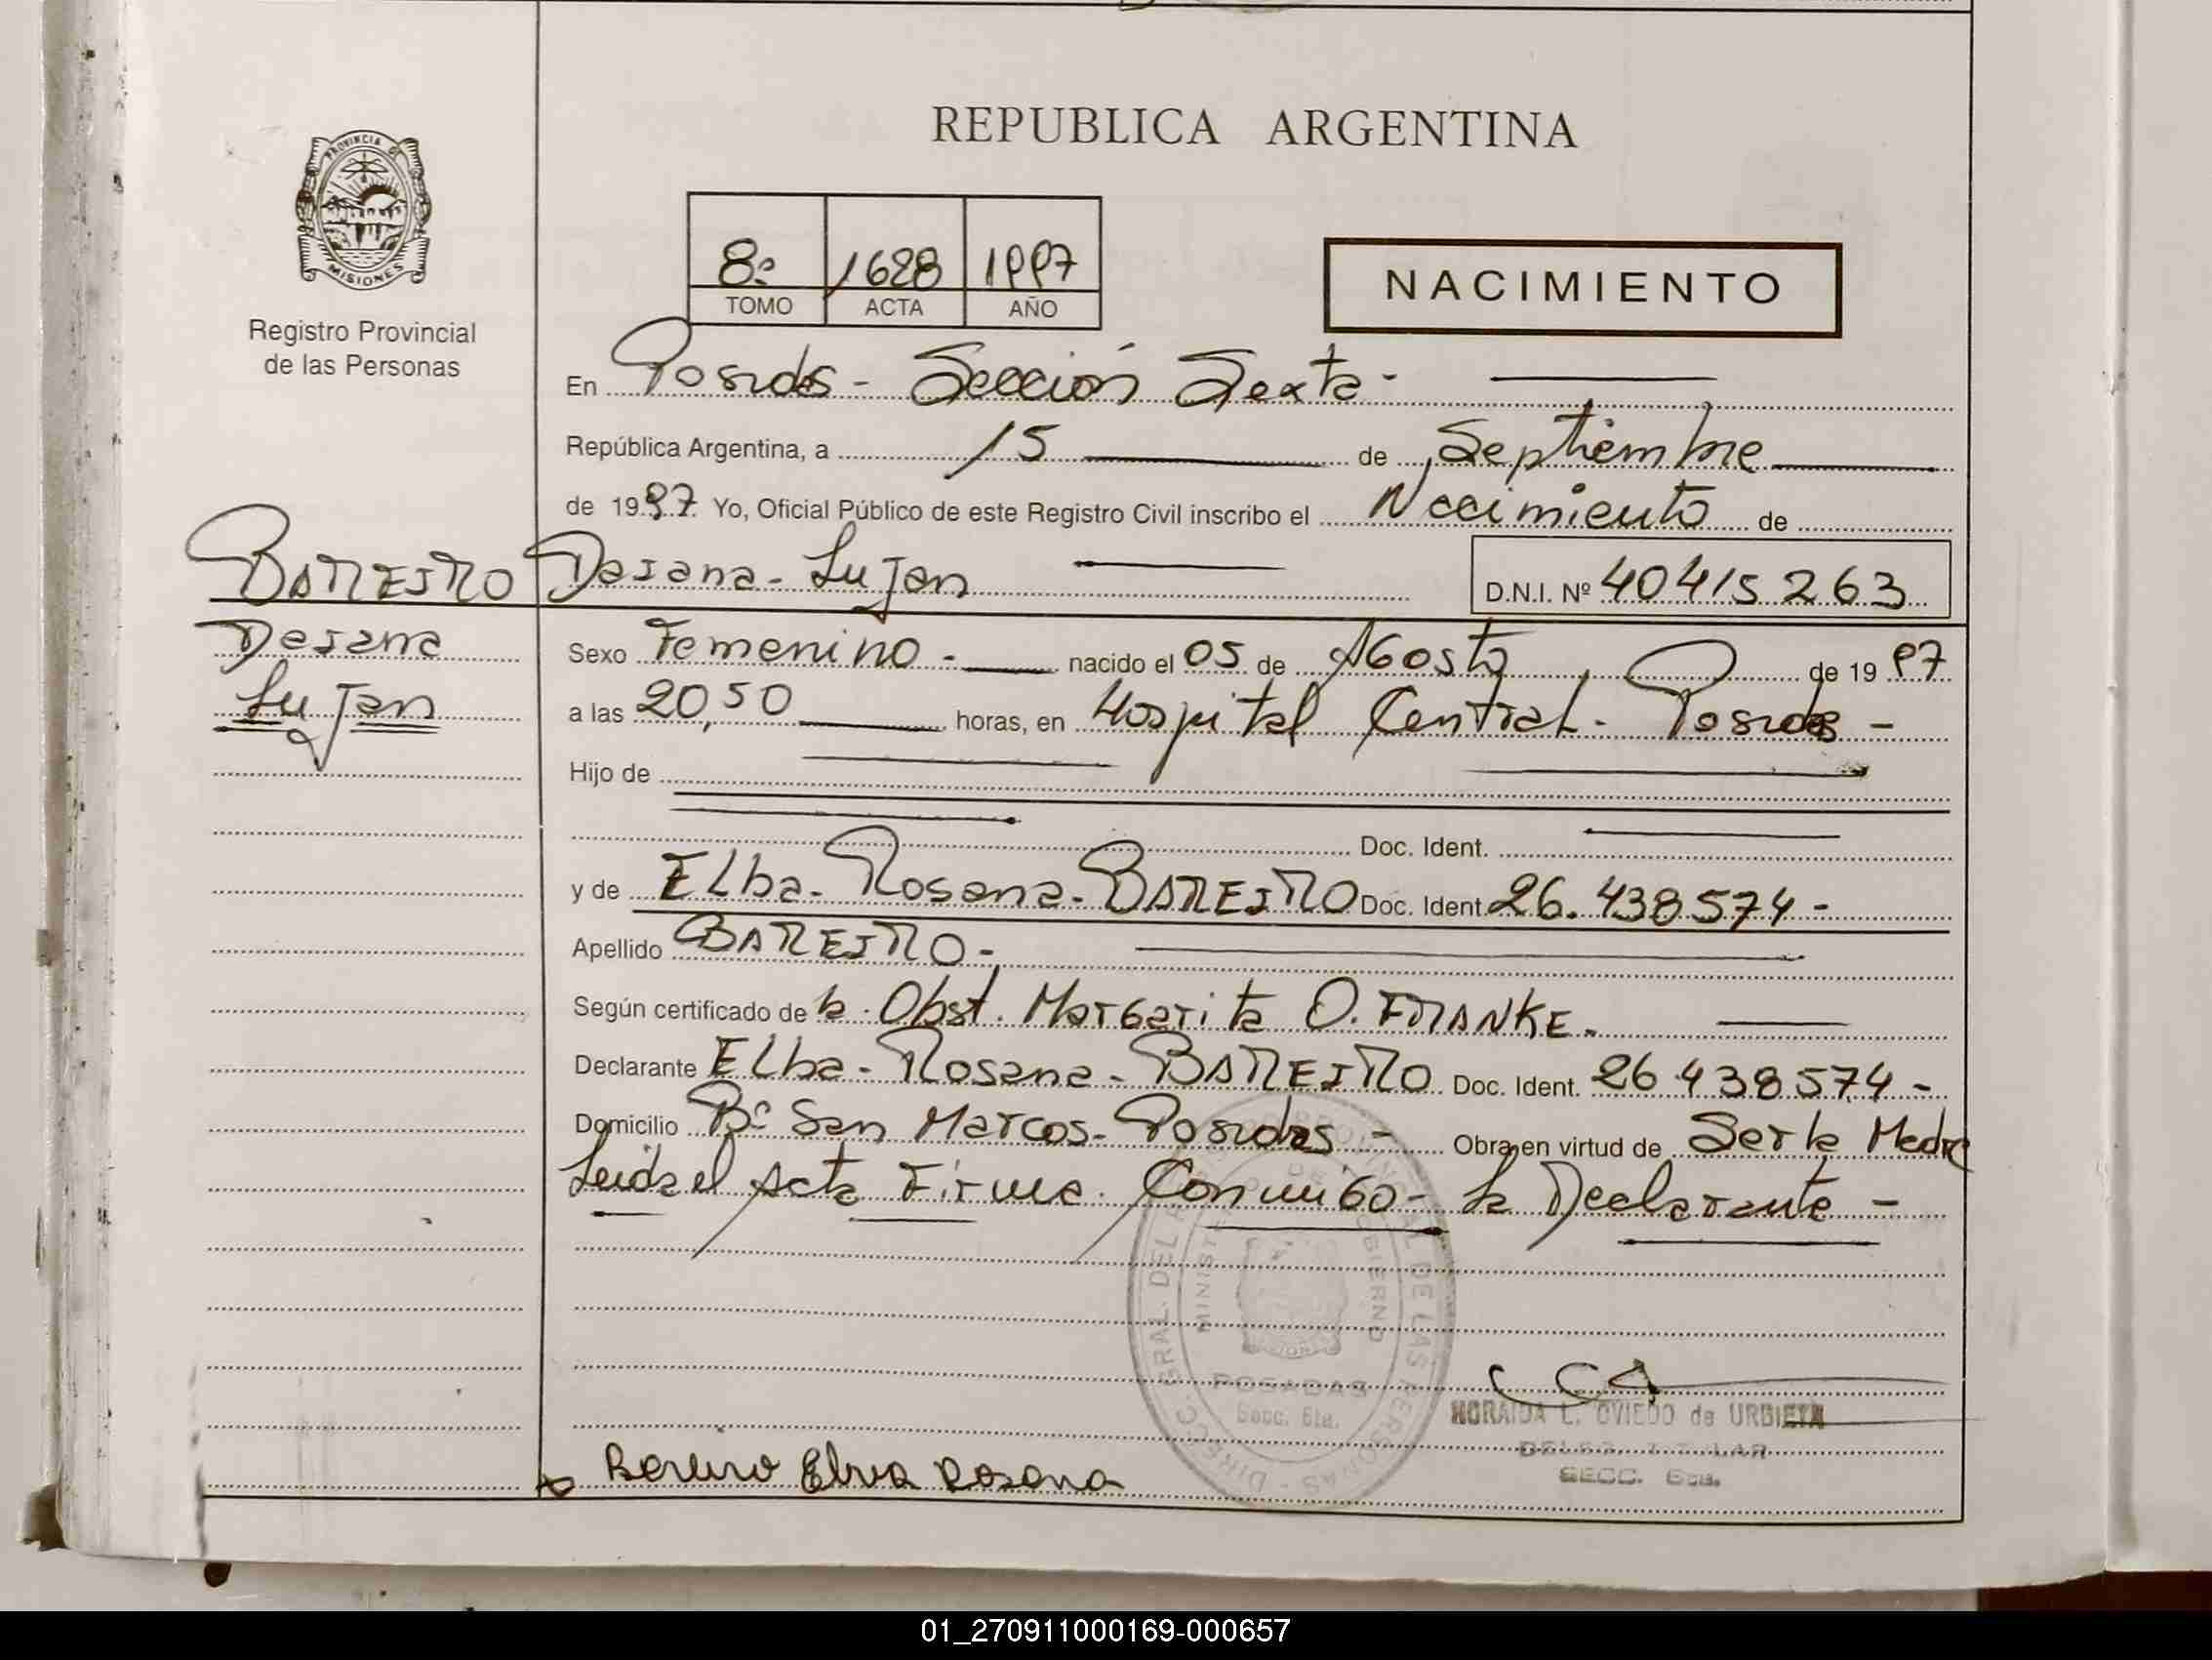 REPUBLICA ARGENTINA
PROVINCIA DE
MISIONES
Registro Provincial
de las Personas
8º 1628 1997
TOMO ACTA AÑO
NACIMIENTO
En Posadas - Sección Sexta -
República Argentina, a 15 de Septiembre
de 1997 Yo, Oficial Público de este Registro Civil inscribo el Nacimiento de
BAREIRO Daiana - Lujan
D.N.I. Nº 40415263
Daiana
Lujan
Sexo Femenino - nacido el 05 de AGosto de 1997
a las 20,50 horas, en Hospital Central - Posadas -
Hijo de
Doc. Ident.
y de Elba - Rosana - BAREIRO Doc. Ident. 26.438574 -
Apellido BAREIRO -
Según certificado de la Obst. Margarita O. FRANKE -
Declarante Elba - Rosana - BAREIRO Doc. Ident. 26.438574 -
Domicilio Bº San Marcos - Posadas - Obra en virtud de Ser la Madre
Leida el Acta Firma Conmigo - la Declarante -
MINISTERIO DE GOBIERNO
POSADAS
Secc. 6ta.
NORAIDA L. OVIEDO de URBIETA
DELEG. TITULAR
SECC. 6ta.
Bareiro Elva Rosana
01_270911000169-000657